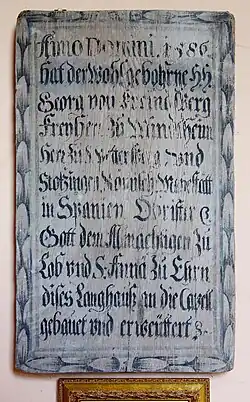 Anno Domini. 1586
hat der Wohlgebohrne HH
Georg von Freindsberg
Freyherr Zu Mindlheim
Herr zu S Petersberg Vnd
Stotzingen Königlich Mayestatt
in Spanien Obrister &
Gott dem Allmächtigen Zu
Lob vnd S: Anna Zu Ehrn
dises Langhauß an die Capell
gebauet und erweüttert &